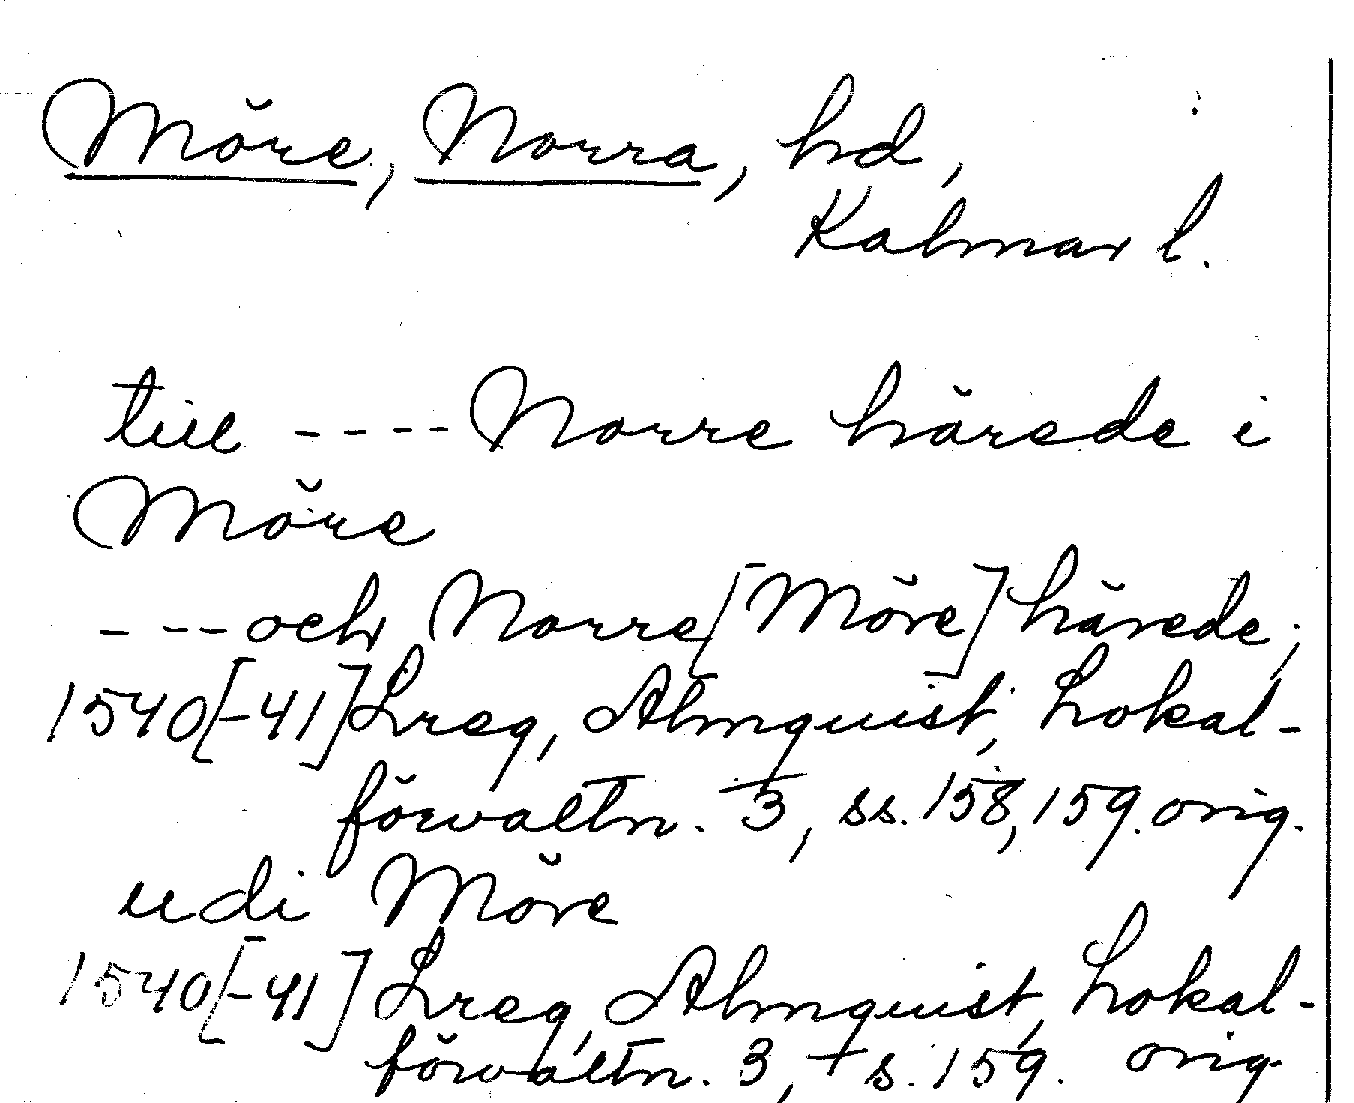 Möre, Norra, hd,
Kalmar l.
till ---- Norre härede i
Möre
---och Norre[Möre] härede;
1540[-41] Lreg, Almquist, Lokal-
förvaltn. 3, ss. 158, 159. orig.
udi Möre
1540[-41] Lreg, Almquist, Lokal-
förvaltn. 3, s. 159. orig